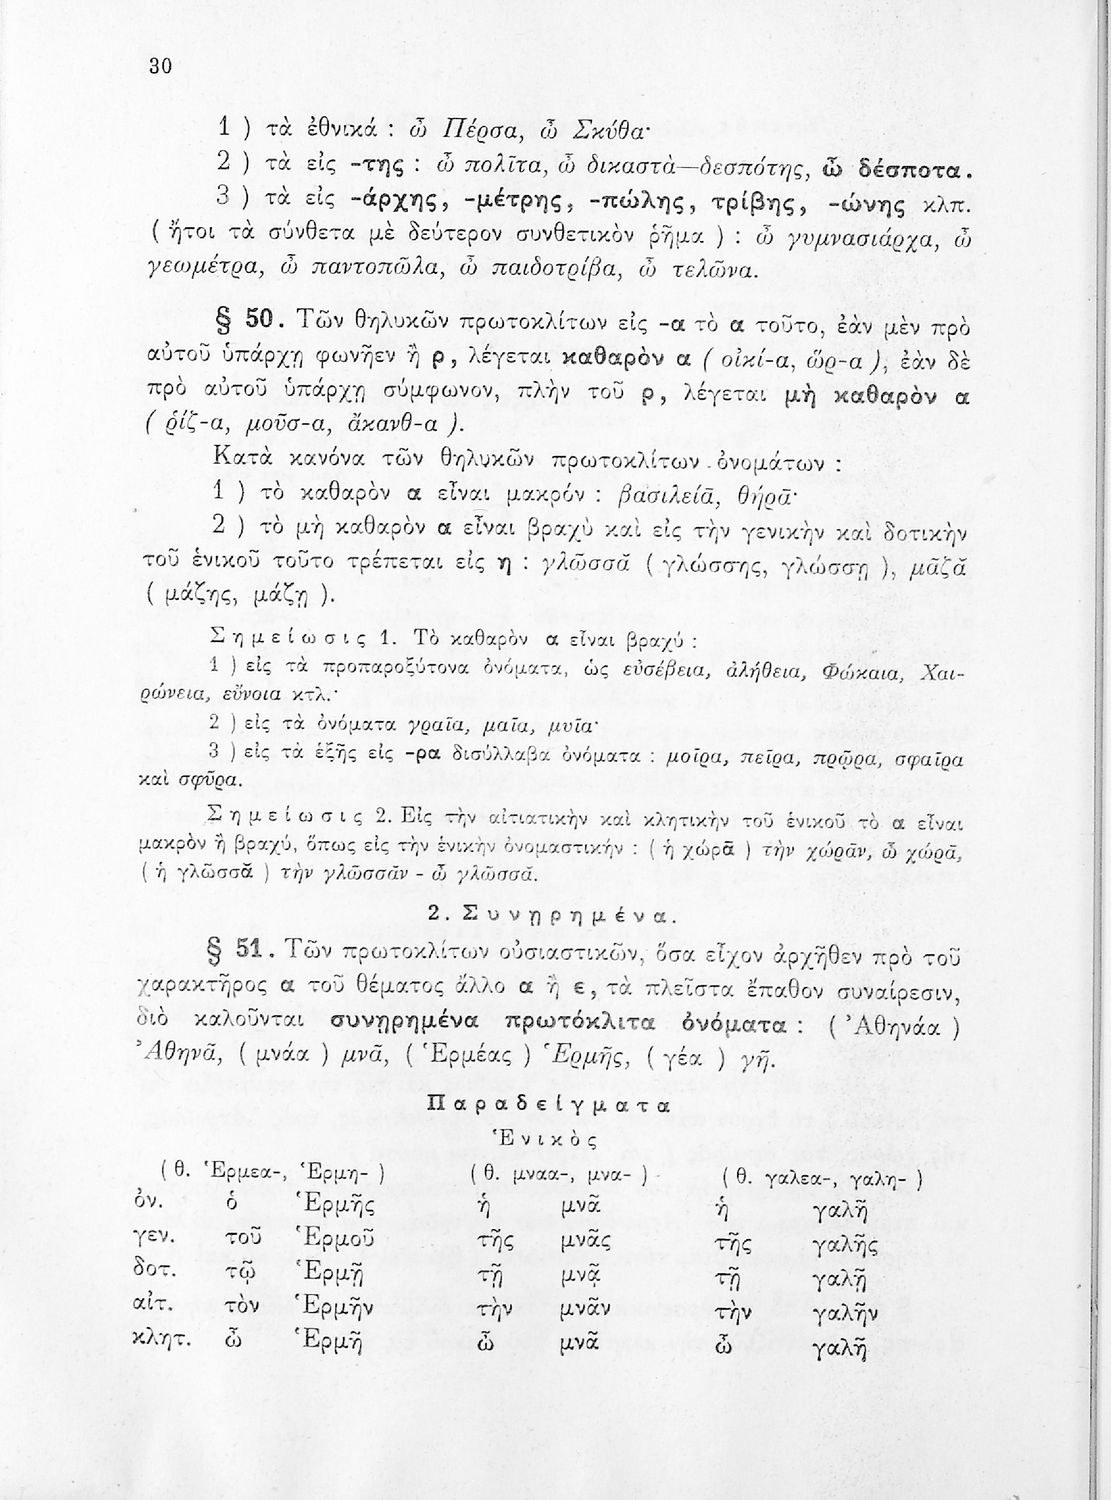 30
1 ) τὰ ἐθνικά : ὦ Πέρσα, ὦ Σκύθα·
2 ) τὰ εἰς -της : ὦ πολῖτα, ὦ δικαστὰ—δεσπότης, ὦ δέσποτα.
3 ) τὰ εἰς -άρχης, -μέτρης, -πώλης, τρίβης, -ώνης κλπ.
( ἤτοι τὰ σύνθετα μὲ δεύτερον συνθετικὸν ῥῆμα ) : ὦ γυμνασιάρχα, ὦ
γεωμέτρα, ὦ παντοπῶλα, ὦ παιδοτρίβα, ὦ τελῶνα.
§ 50. Τῶν θηλυκῶν πρωτοκλίτων εἰς -α τὸ α τοῦτο, ἐὰν μὲν πρὸ
αὐτοῦ ὑπάρχῃ φωνῆεν ἢ ρ, λέγεται καθαρὸν α ( οἰκί-α, ὥρ-α ), ἐὰν δὲ
πρὸ αὐτοῦ ὑπάρχῃ σύμφωνον, πλὴν τοῦ ρ, λέγεται μὴ καθαρὸν α
( ῥίζ-α, μοῦσ-α, ἄκανθ-α ).
Κατὰ κανόνα τῶν θηλυκῶν πρωτοκλίτων ὀνομάτων :
1 ) τὸ καθαρὸν α εἶναι μακρόν : βασιλείᾱ, θήρᾱ·
2 ) τὸ μὴ καθαρὸν α εἶναι βραχὺ καὶ εἰς τὴν γενικὴν καὶ δοτικὴν
τοῦ ἑνικοῦ τοῦτο τρέπεται εἰς η : γλῶσσᾰ ( γλώσσης, γλώσσῃ ), μᾶζᾰ
( μάζης, μάζῃ ).
Σημείωσις 1. Τὸ καθαρὸν α εἶναι βραχύ :
1 ) εἰς τὰ προπαροξύτονα ὀνόματα, ὡς εὐσέβεια, ἀλήθεια, Φώκαια, Χαι-
ρώνεια, εὔνοια κτλ.·
2 ) εἰς τὰ ὀνόματα γραῖα, μαῖα, μυῖα·
3 ) εἰς τὰ ἑξῆς εἰς -ρα δισύλλαβα ὀνόματα : μοῖρα, πεῖρα, πρῷρα, σφαῖρα
καὶ σφῦρα.
Σημείωσις 2. Εἰς τὴν αἰτιατικὴν καὶ κλητικὴν τοῦ ἑνικοῦ τὸ α εἶναι
μακρὸν ἢ βραχύ, ὅπως εἰς τὴν ἑνικὴν ὀνομαστικήν : ( ἡ χώρᾱ ) τὴν χώρᾱν, ὦ χώρᾱ,
( ἡ γλῶσσᾰ ) τὴν γλῶσσᾰν - ὦ γλῶσσᾰ.
2. Συνῃρημένα.
§ 51. Τῶν πρωτοκλίτων οὐσιαστικῶν, ὅσα εἶχον ἀρχῆθεν πρὸ τοῦ
χαρακτῆρος α τοῦ θέματος ἄλλο α ἢ ε, τὰ πλεῖστα ἔπαθον συναίρεσιν,
διὸ καλοῦνται συνῃρημένα πρωτόκλιτα ὀνόματα : ( Ἀθηνάα )
Ἀθηνᾶ, ( μνάα ) μνᾶ, ( Ἑρμέας ) Ἑρμῆς, ( γέα ) γῆ.
Παραδείγματα
Ἑνικὸς
( θ. Ἑρμεα-, Ἑρμη- ) ( θ. μναα-, μνα- ) ( θ. γαλεα-, γαλη- )
ὀν. ὁ Ἑρμῆς ἡ μνᾶ ἡ γαλῆ
γεν. τοῦ Ἑρμοῦ τῆς μνᾶς τῆς γαλῆς
δοτ. τῷ Ἑρμῇ τῇ μνᾷ τῇ γαλῇ
αἰτ. τὸν Ἑρμῆν τὴν μνᾶν τὴν γαλῆν
κλητ. ὦ Ἑρμῆ ὦ μνᾶ ὦ γαλῆ